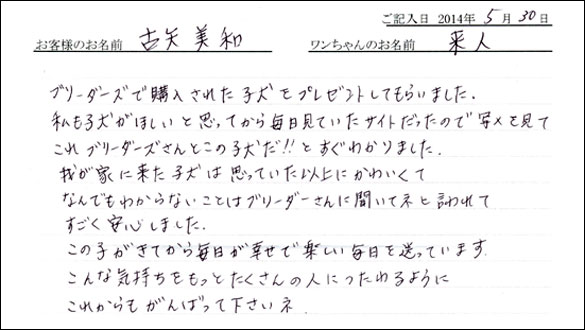 ご記入日 2014年 5月 30日
お客様のお名前 古矢 美和 ワンちゃんのお名前 来人
ブリーダーズで購入された子犬をプレゼントしてもらいました。
私も子犬がほしいと思ってから毎日見ていたサイトだったので写メを見て
これブリーダーズさんとこの子犬だ!!とすぐわかりました。
我が家に来た子犬は思っていた以上にかわいくて
なんでもわからないことはブリーダーさんに聞いてネと言われて
すごく安心しました。
この子がきてから毎日が幸せで楽しい毎日を送っています
こんな気持ちをもっとたくさんの人につたわるように
これからもがんばって下さいネ